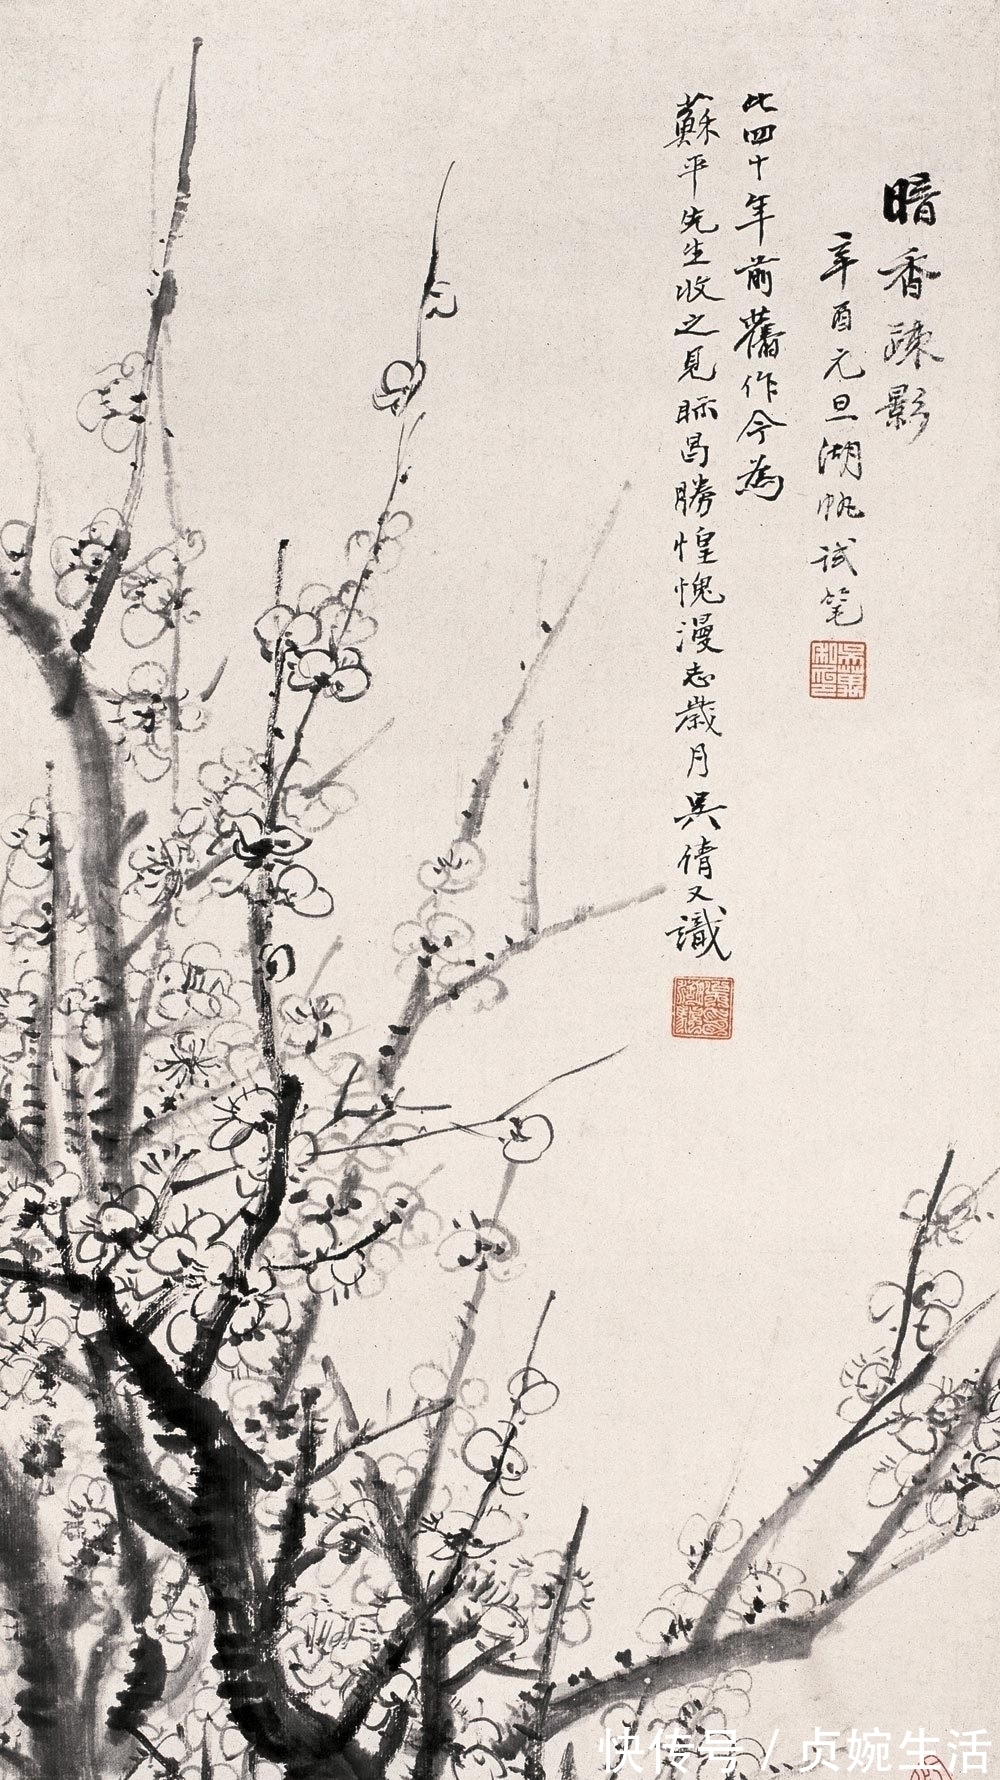 暗香疎影
辛酉元旦湖帆试笔
此四十年前舊作今為
蘇平先生收之見眎曷勝惶愧漫志歲月吳倩又識
快传号 / 贞婉生活